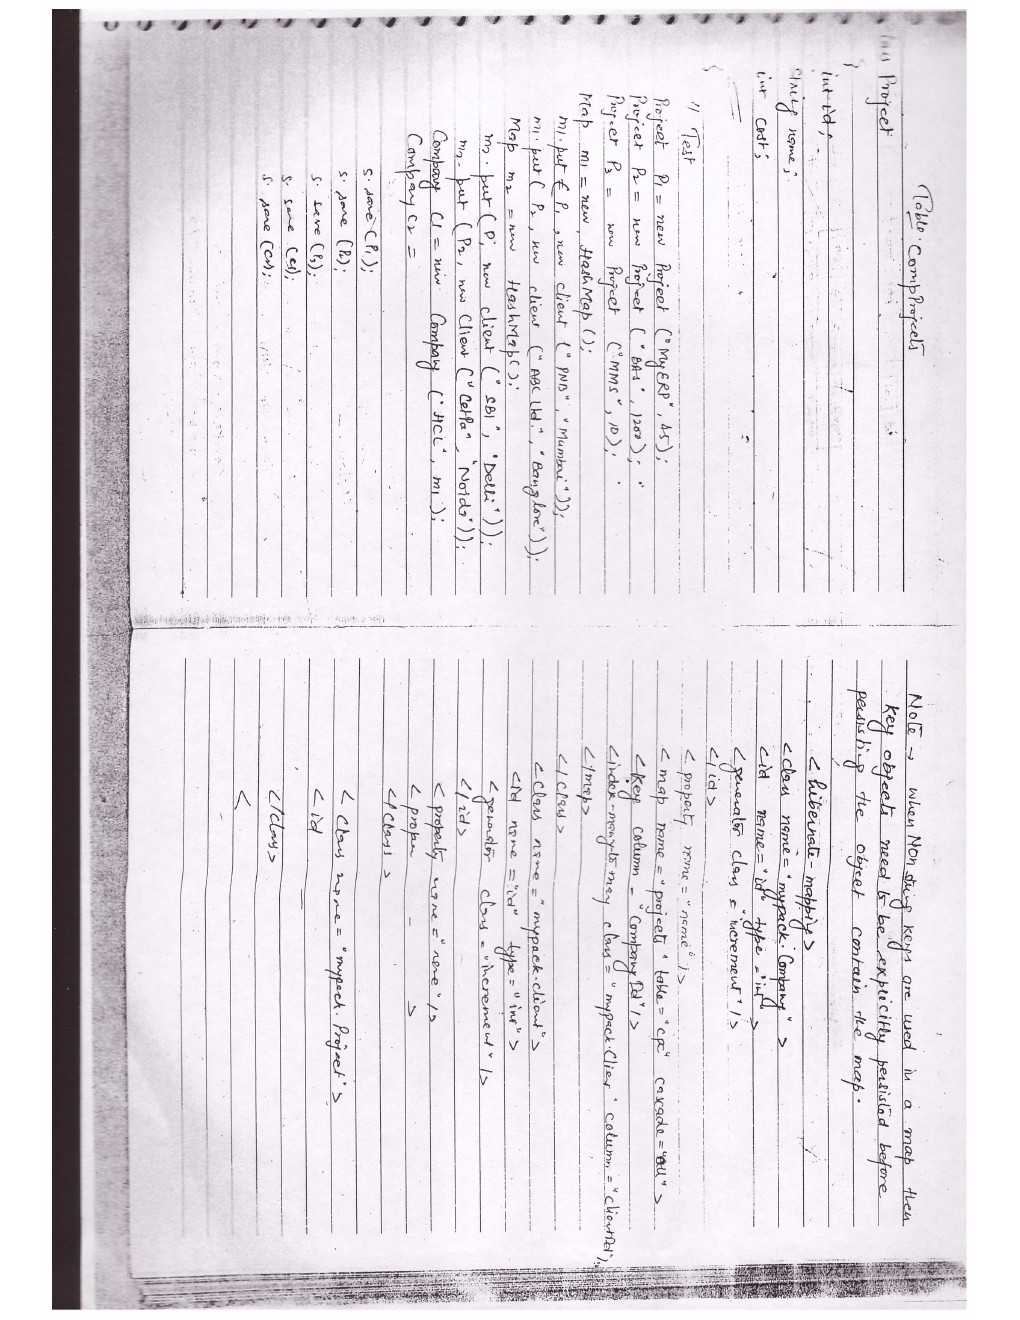 Table: CompProjects
Project
{
int id;
String name;
int cost;
}
// Test
Project P1 = new Project ("MyERP", 45);
Project P2 = new Project ("BAS", 1200);
Project P3 = new Project ("MMS", 10);
Map m1 = new HashMap();
m1.put ( P1, new client ("PNB", "Mumbai"));
m1.put ( P2, new client ("ABC Ltd.", "Banglore"));
Map m2 = new HashMap();
m2.put (P1, new client ("SBI", "Delhi"));
m2.put (P2, new Client ("Cetpa", "Noida"));
Company C1 = new Company ("HCL", m1);
Company C2 =
s.save (P1);
s.save (P2);
s.save (P3);
s.save (C1);
s.save (C2);
Note → when Non string keys are used in a map then
key objects need to be explicitly persisted before
persisting the object contain the map.
<hibernate-mapping>
<class name="mypack.Company">
<id name="id" type="int">
<generator class="increment"/>
</id>
<property name="name"/>
<map name="projects" table="cpc" cascade="all">
<key column="CompanyId"/>
<index-many-to-many class="mypack.Clier" column="clientId"/>
</map>
</class>
<class name="mypack.client">
<id name="id" type="int">
<generator class="increment"/>
</id>
<property name="name"/>
<proper - >
</class>
<class name="mypack.Project">
<id —
</class>
<